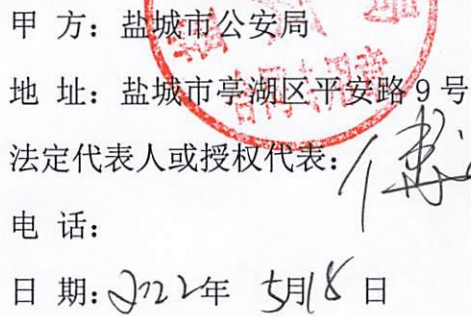 甲 方：盐城市公安局
合同专用章
地 址：盐城市亭湖区平安路 9 号
法定代表人或授权代表：
电 话：
日 期：2022年 5月18日